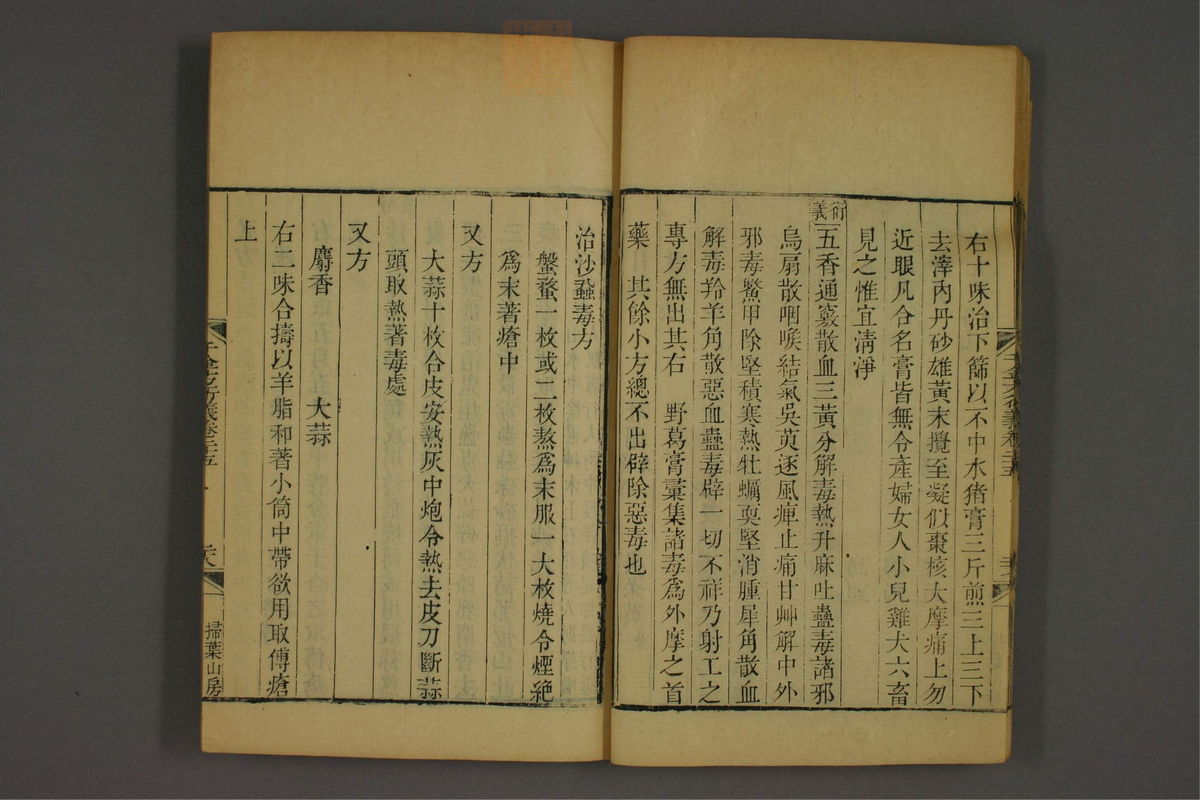 右十味治下篩以不中水猪膏三斤煎三上三下
去滓內丹砂雄黃末攪至凝似棗核大摩痛上勿
近眼凡合名膏皆無令產婦女人小兒雞犬六畜
見之惟宜清淨
衍義
五香通竅散血三黃分解毒熱升麻吐蠱毒諸邪
烏扇散咽喉結氣吳萸逐風痺止痛甘艸解中外
邪毒鱉甲除堅積寒熱牡蠣耎堅消腫犀角散血
解毒羚羊角散惡血蠱毒辟一切不祥乃射工之
專方無出其右 野葛膏彙集諸毒爲外摩之首
藥 其餘小方總不出辟除惡毒也
治沙蝨毒方
螌蝥一枚或二枚熬爲末服一大枚燒令煙絕
爲末著瘡中
又方
大蒜十枚合皮安熱灰中炮令熱去皮刀斷蒜
頭取熱著毒處
又方
麝香 大蒜
右二味合擣以羊脂和著小筒中帶欲用取傅瘡
上
千金方衍義卷二十五
掃葉山房